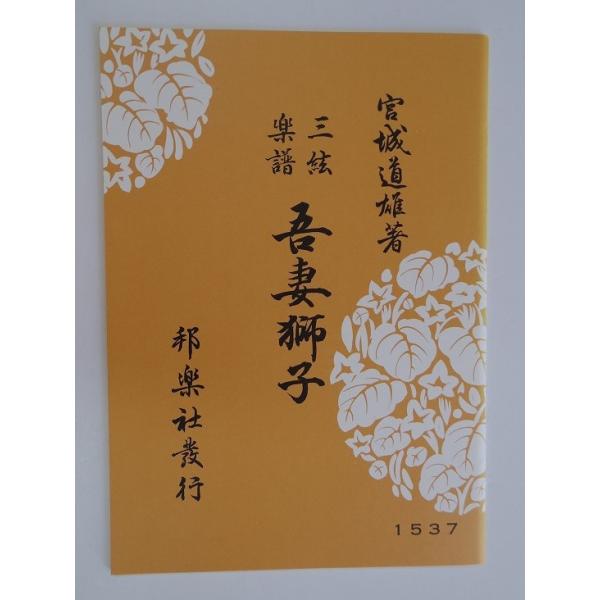 宮城道雄著
三絃
楽譜
吾妻獅子
邦樂社發行
1537